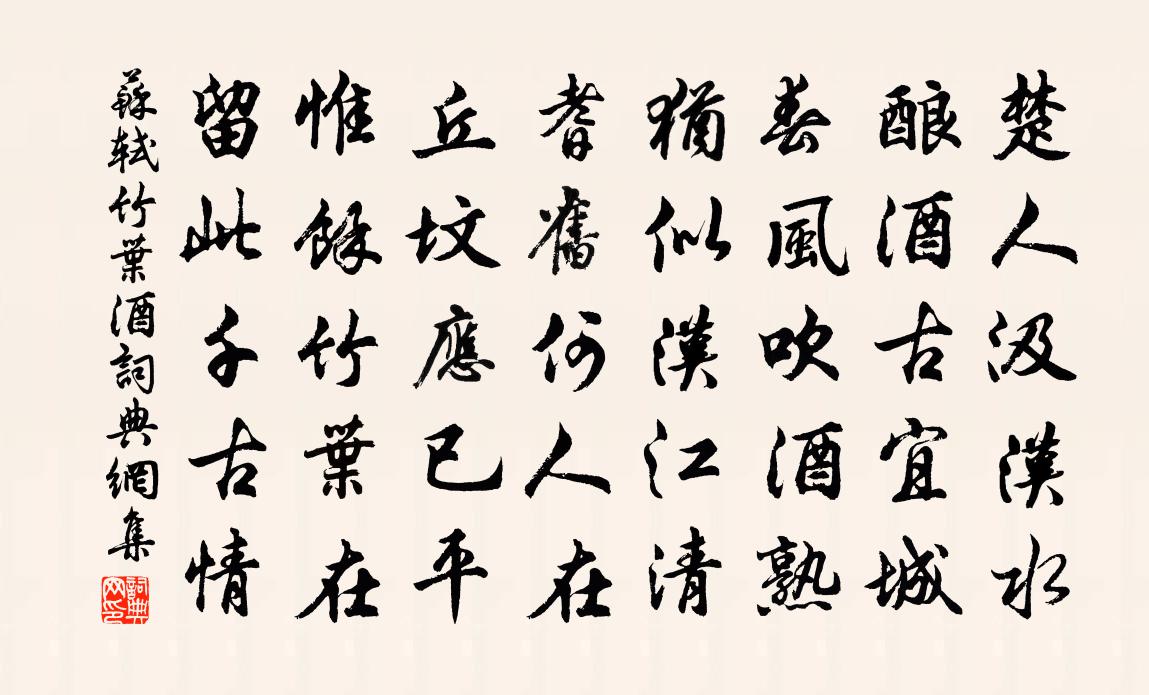 楚人汲漢水
酿酒古宜城
春風吹酒熟
猶似漢江清
耆舊何人在
丘坟應已平
惟餘竹葉在
留此千古情
蘇軾竹葉酒詞典網集
詞典网印